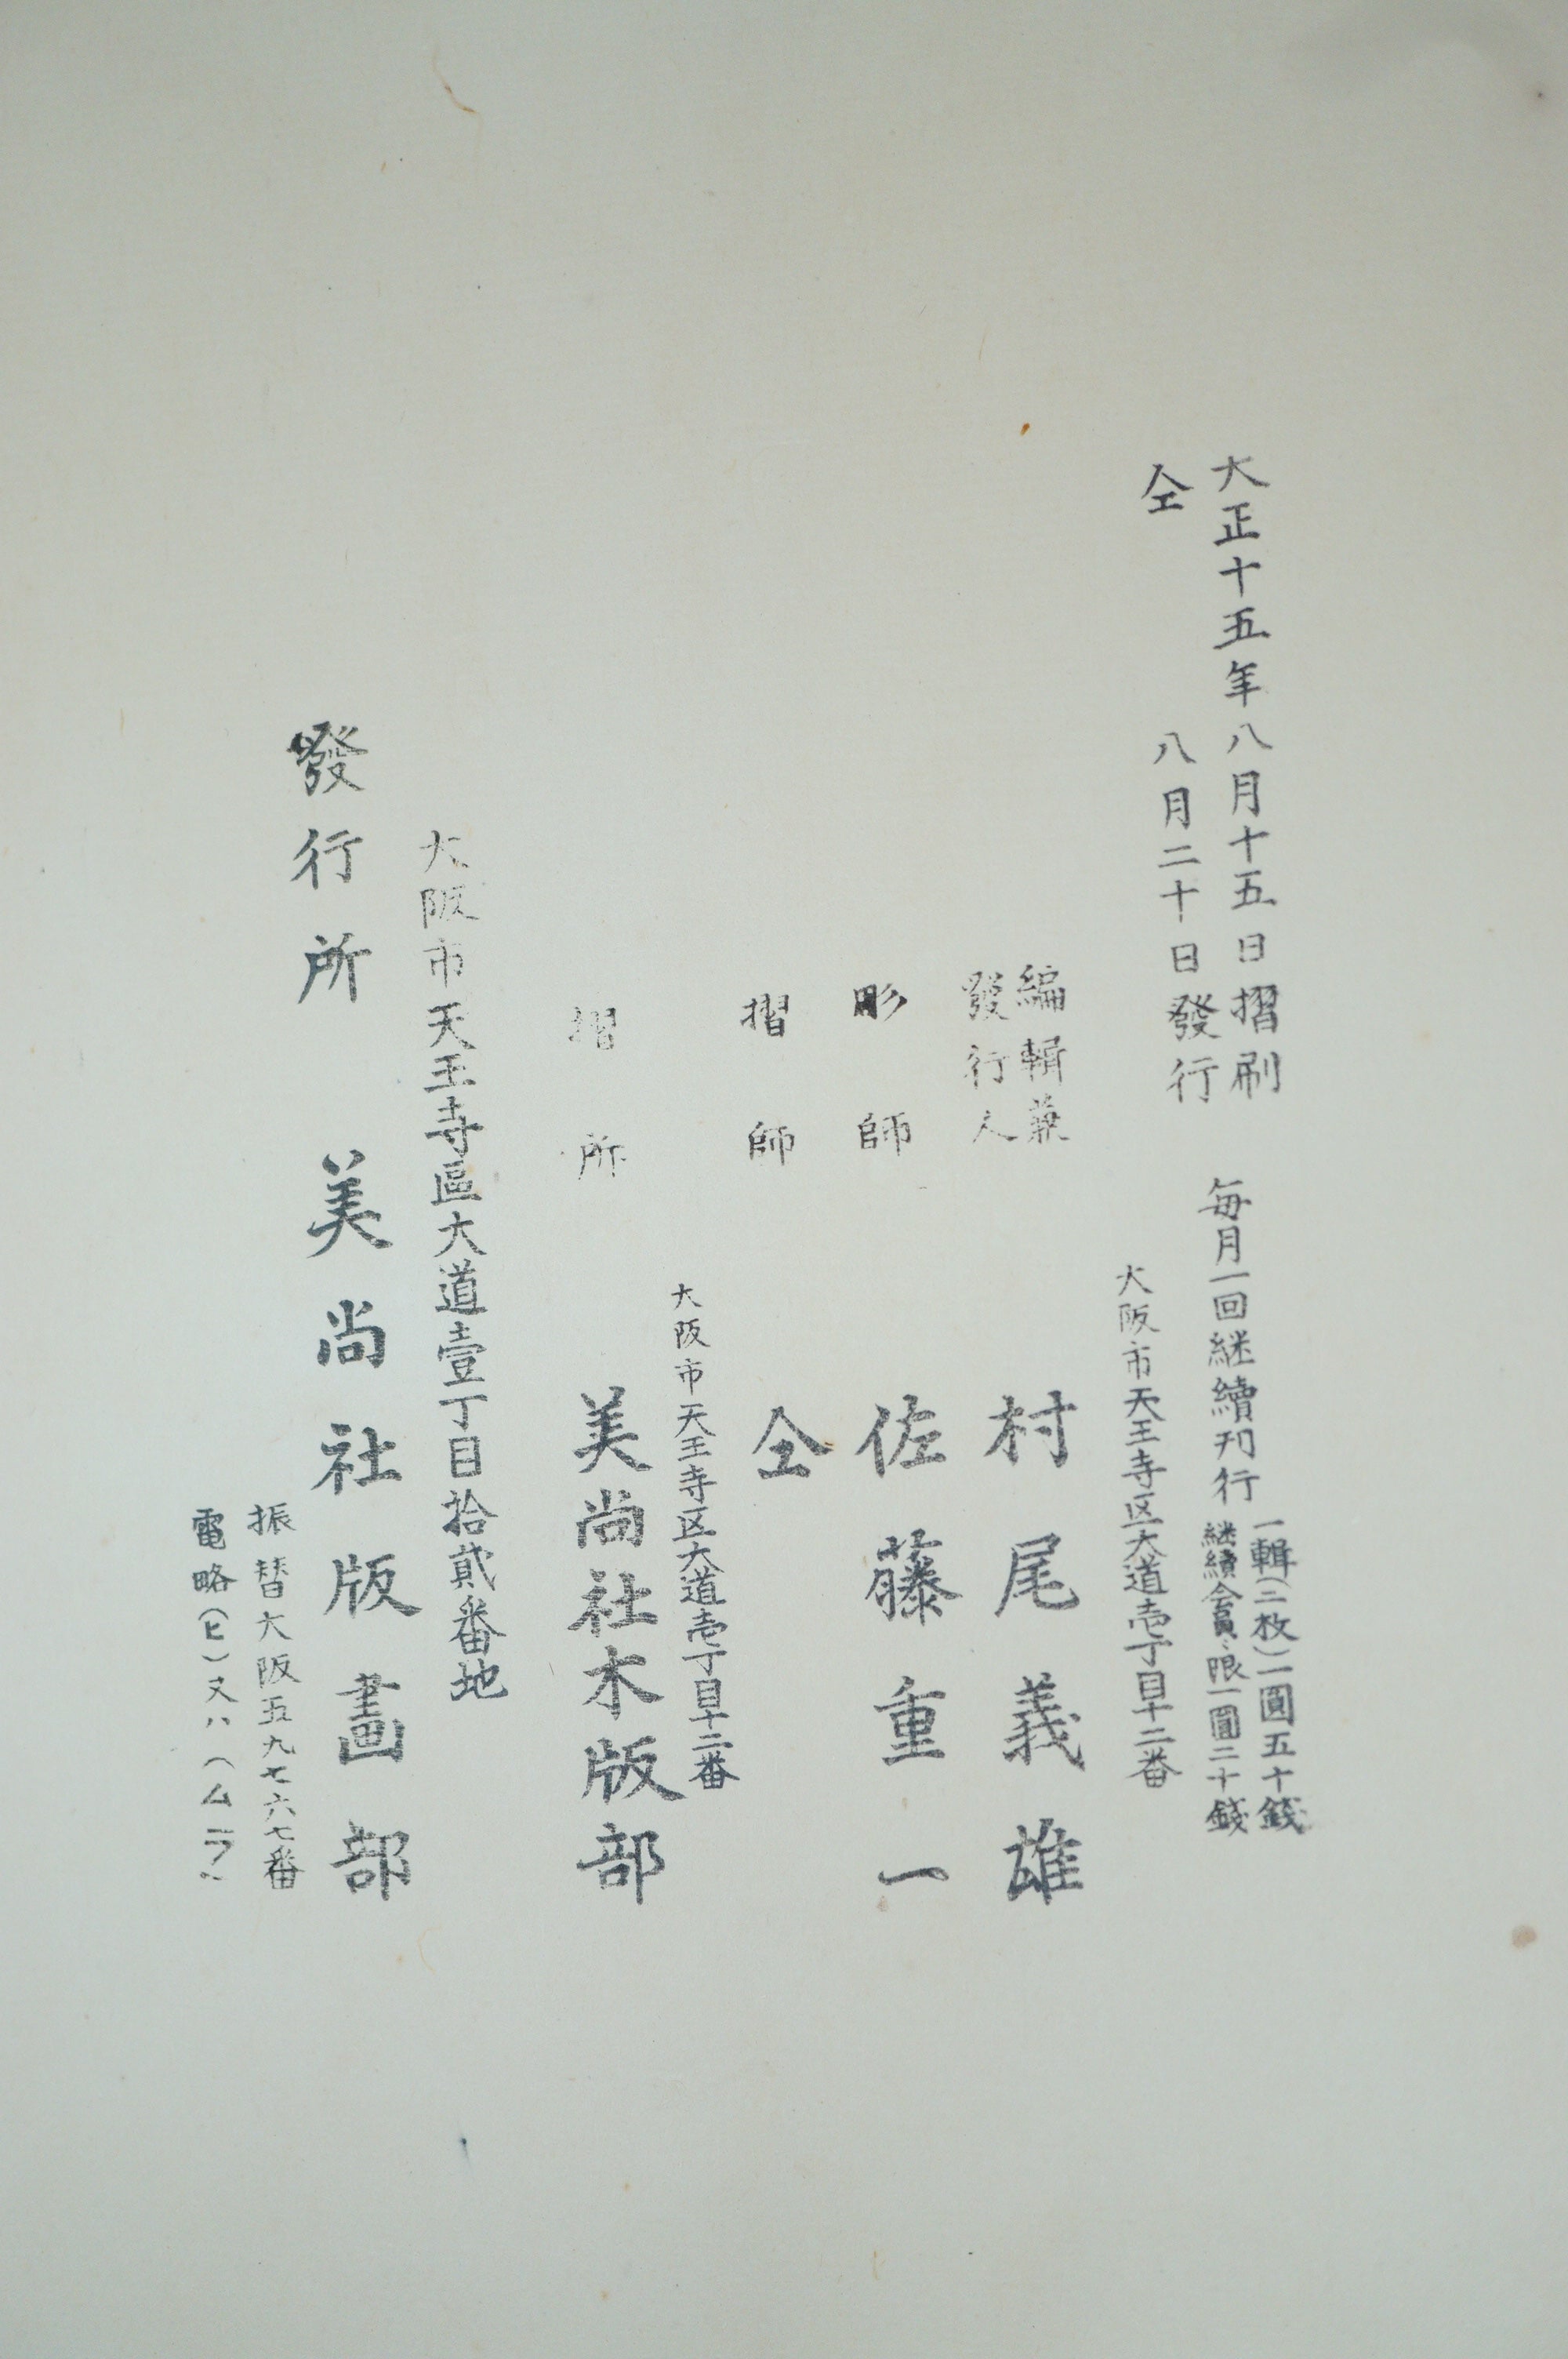 大正十五年八月十五日摺刷
仝　八月二十日發行
毎月一回継續刊行
一輯(三枚)一圓五十錢
継續会員ニ限一圓二十錢
大阪市天王寺区大道壱丁目十二番
編輯兼
發行人
村尾義雄
彫師　佐藤重一
摺師　仝
大阪市天王寺区大道壱丁目十二番
摺所　美尚社木版部
大阪市天王寺區大道壹丁目拾貳番地
發行所　美尚社版畫部
振替大阪五九七六七番
電略(ヒ)又ハ(ムラ)